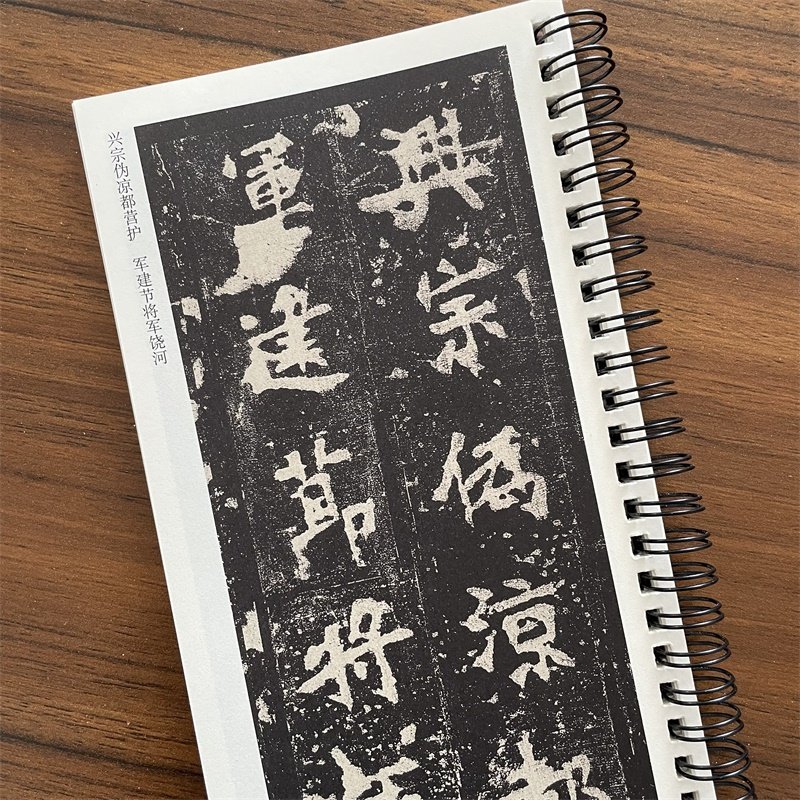 興宗偽涼都
軍建節將
兴宗伪凉都营护 军建节将军饶河